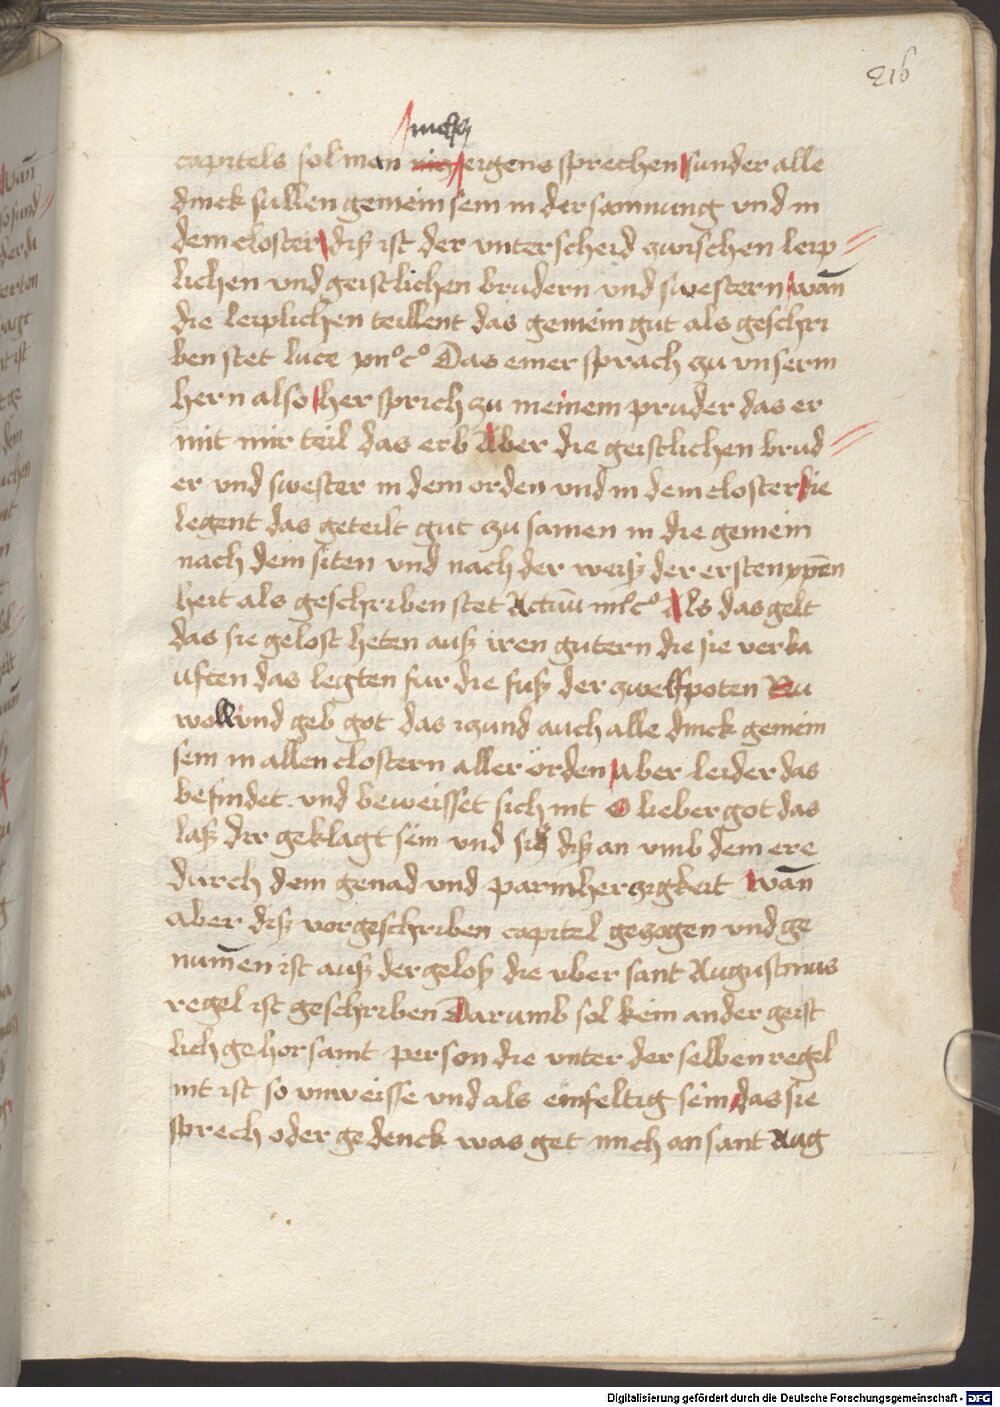 216
nichtz
capitels sol man eigens sprechen sunder alle
dinck sullen gemein sein in der samnung vnd in
dem closter diß ist der vnterscheid zwischen leip
lichen vnd geistlichen brudern vnd swestern wan̄
die leiplichen teillent das gemein gut als geschri
ben stet luce xii° c° Das einer sprach zu vnserm
hern also her sprich zu meinem pruder das er
mit mir teil das erb Aber die geistlichen brud
er vnd swester in dem orden vnd in dem closter die
legent das geteilt gut zu samen in die gemein
nach dem siten vnd nach der weiß der ersten xp̄en
heit als geschriben stet Actuū iiii° c° Als das gelt
das sie gelost heten auß iren gutern die sie verka
uften das legten fur die fuß der zwelfpoten Nu
woll vnd geb got das izund auch alle dinck gemein
sein in allen clostern aller örden aber leider das
befindet vnd beweisset sich nit O lieber got das
laß dir geklagt sein vnd sich diß an vmb dein ere
durch dein genad vnd parmherzigkeit wan̄
aber diß vorgeschriben capitel gezogen vnd ge
num̄en ist auß der gloß die vber sant Augustinus
regel ist geschriben Darumb sol kein ander geist
lich gehorsamt person die vnter der selben regel
nit ist so vnweisse vnd als einfeltig sein das sie
sprech oder gedenck was get mich an sant Aug
Digitalisierung gefördert durch die Deutsche Forschungsgemeinschaft - DFG